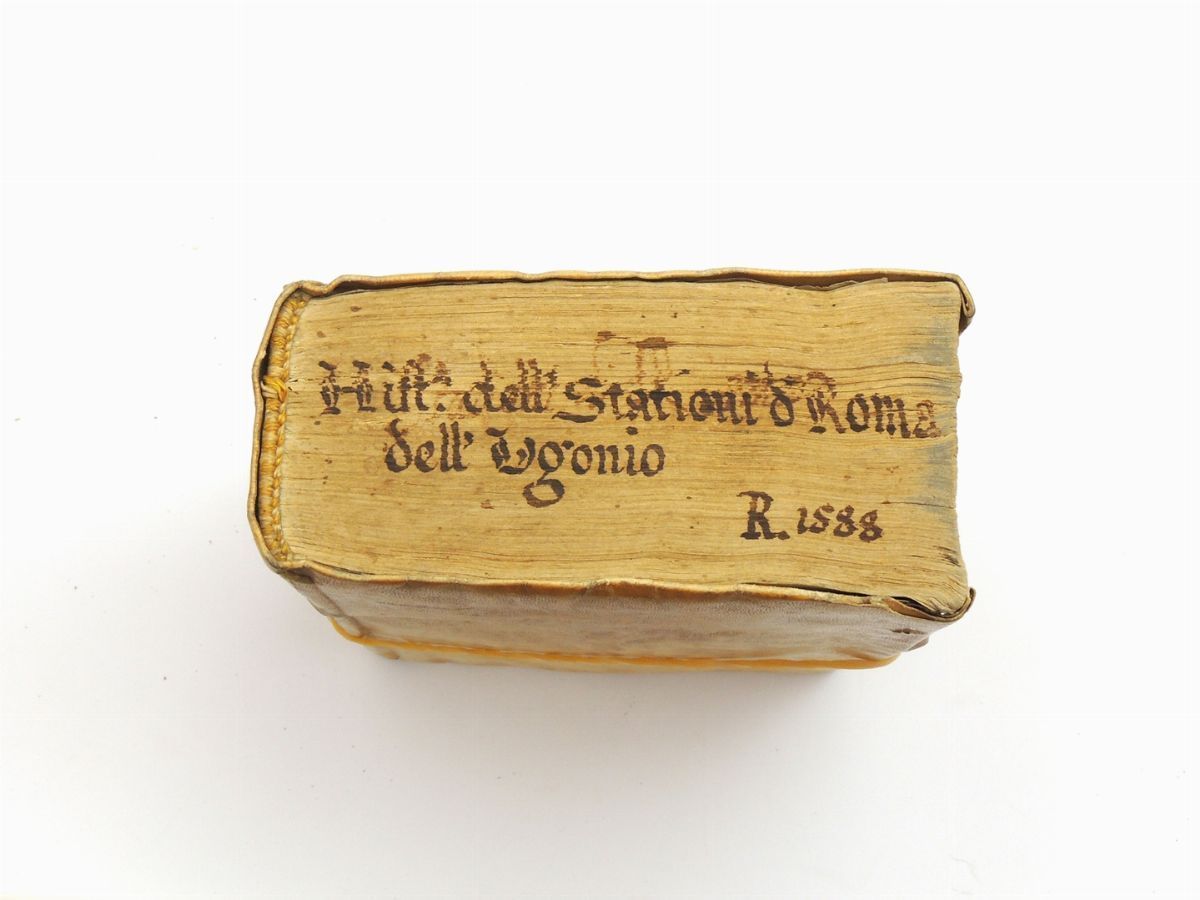 Hist. dell' Stationi d Roma
dell' Vgonio
R. 1588